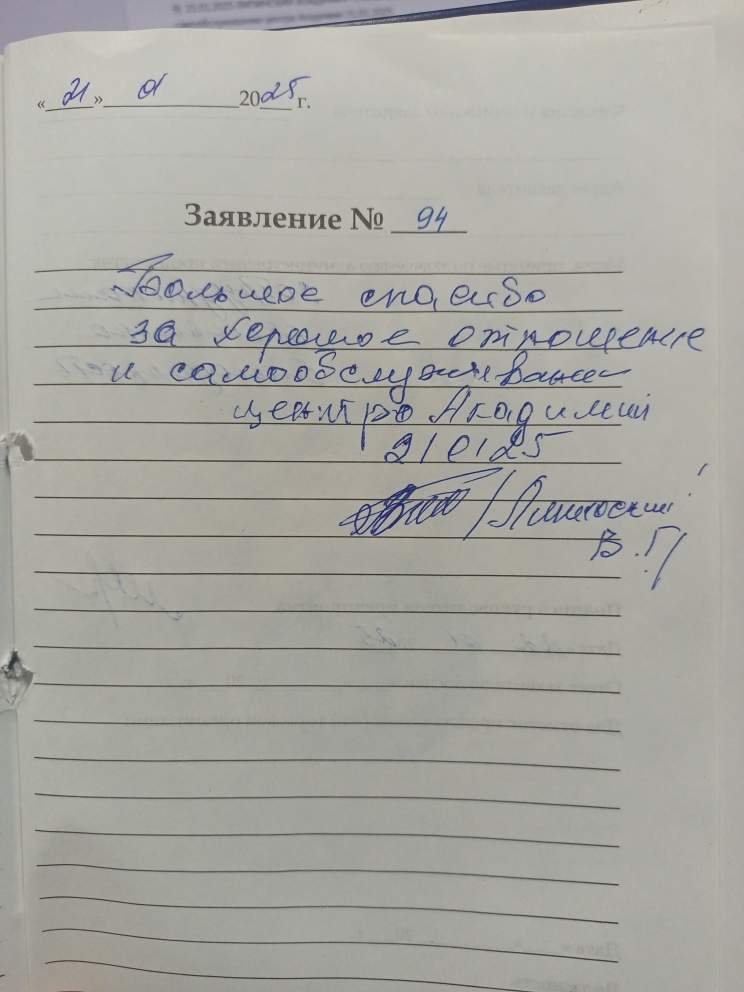 « 21 » 01 2025 г.
Заявление № 94
Большое спасибо
за хорошое отношение
и самообслуживание
центро Академии
21 01 25
В.Г.